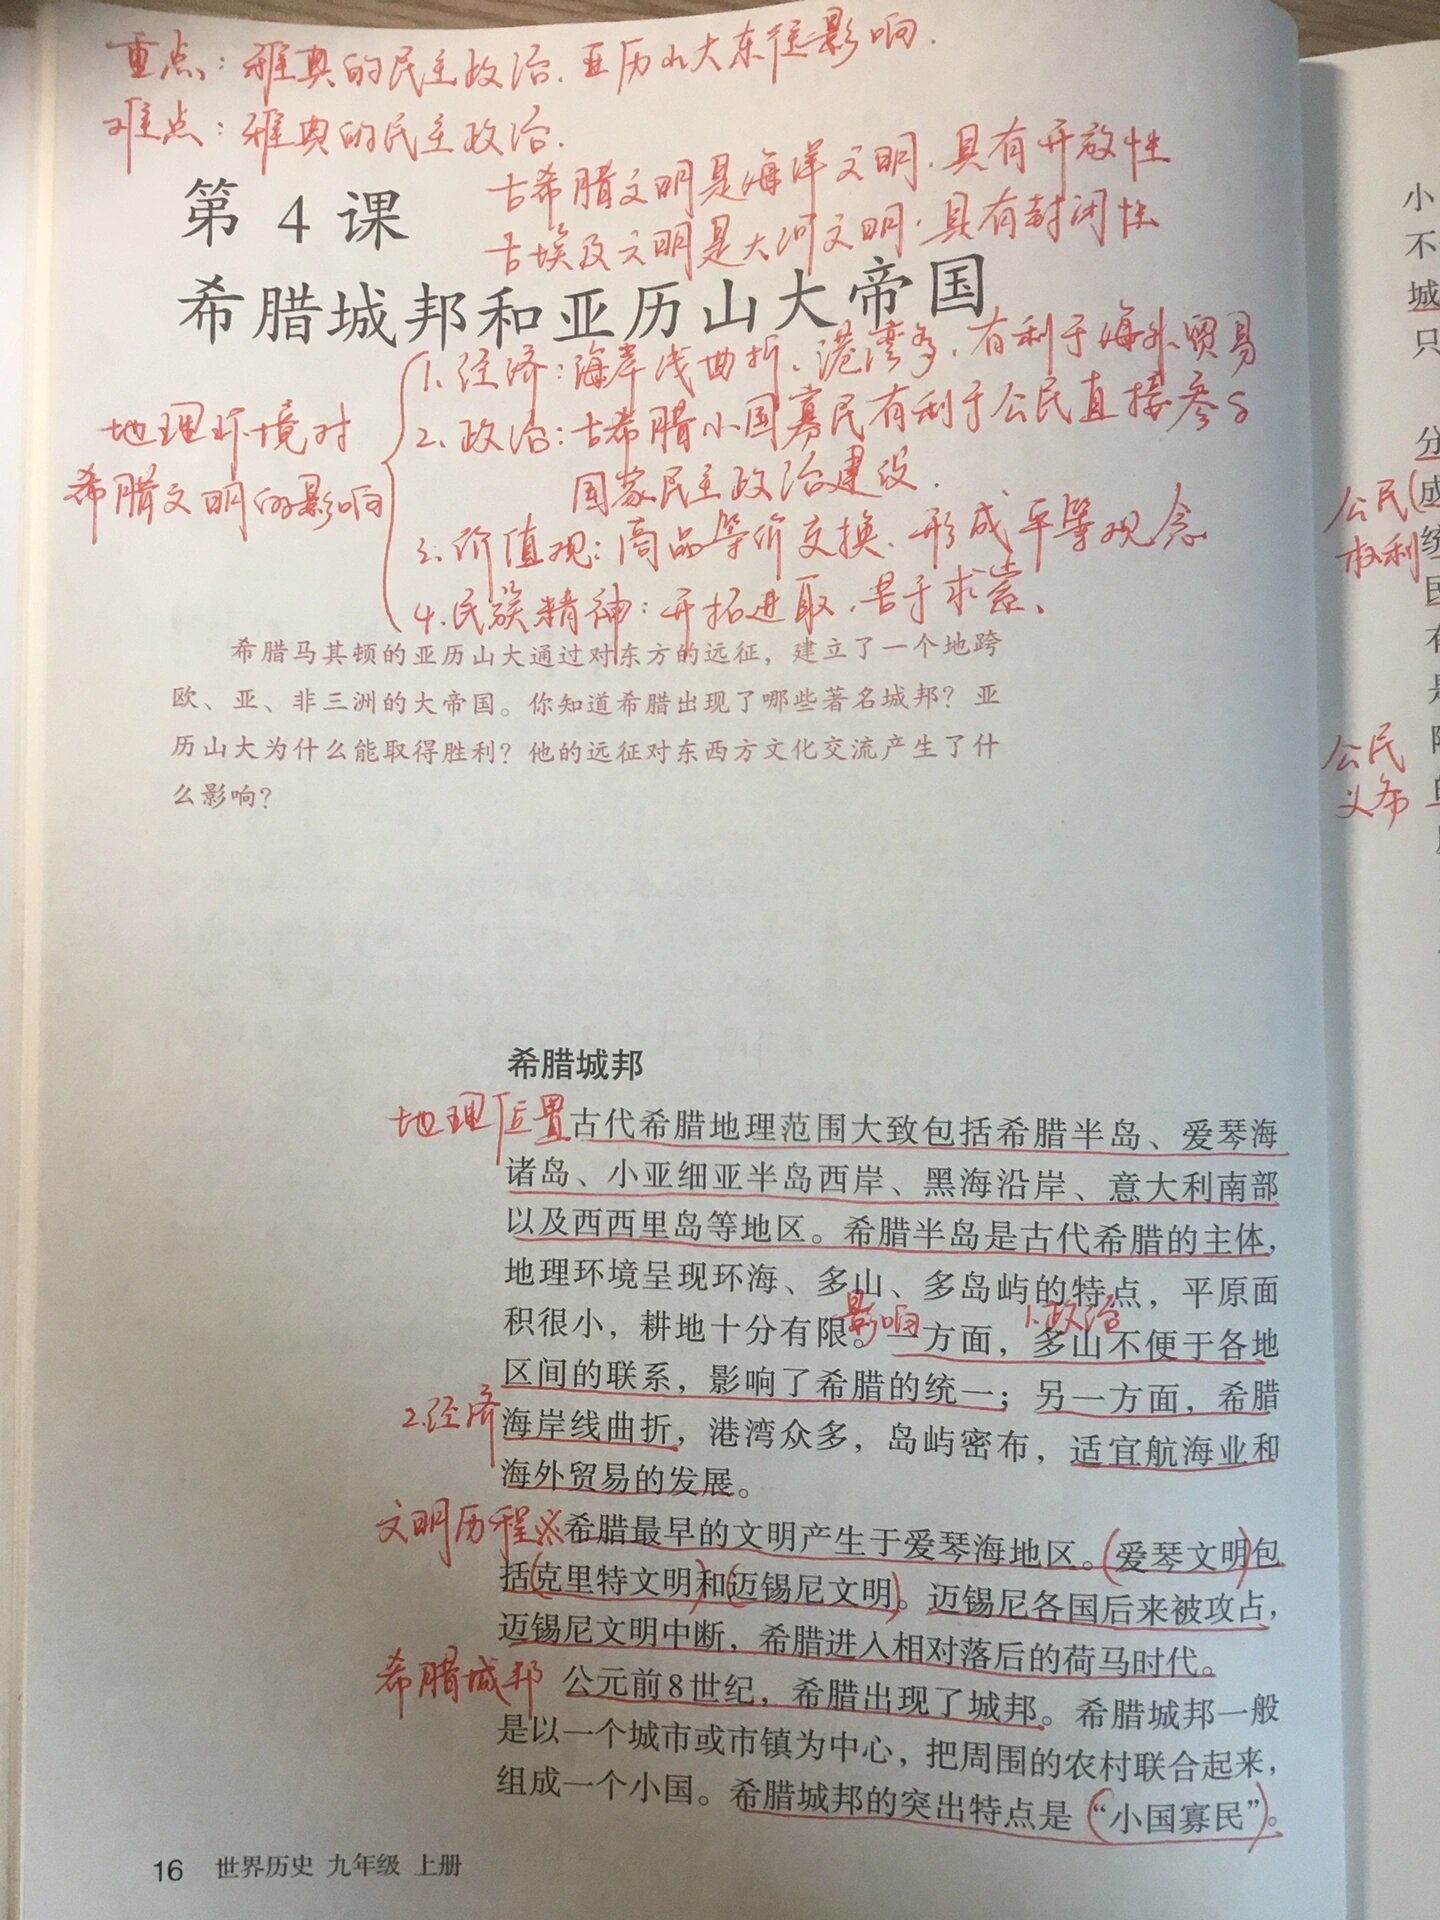 重点：雅典的民主政治.亚历山大东征影响.
难点：雅典的民主政治.
古希腊文明是海洋文明.具有开放性
古埃及文明是大河文明.具有封闭性
第 4 课
希腊城邦和亚历山大帝国
地理环境对
希腊文明的影响
1.经济：海岸线曲折、港湾多.有利于海外贸易
2.政治：古希腊小国寡民有利于公民直接参与
国家民主政治建设.
3.价值观：商品等价交换、形成平等观念
4.民族精神：开拓进取.善于求索、
希腊马其顿的亚历山大通过对东方的远征，建立了一个地跨
欧、亚、非三洲的大帝国。你知道希腊出现了哪些著名城邦？亚
历山大为什么能取得胜利？他的远征对东西方文化交流产生了什
么影响？
希腊城邦
地理位置
古代希腊地理范围大致包括希腊半岛、爱琴海
诸岛、小亚细亚半岛西岸、黑海沿岸、意大利南部
以及西西里岛等地区。希腊半岛是古代希腊的主体，
地理环境呈现环海、多山、多岛屿的特点，平原面
影响 1.政治
积很小，耕地十分有限。一方面，多山不便于各地
区间的联系，影响了希腊的统一；另一方面，希腊
2.经济
海岸线曲折，港湾众多，岛屿密布，适宜航海业和
海外贸易的发展。
文明历程※
希腊最早的文明产生于爱琴海地区。(爱琴文明)包
括(克里特文明)和(迈锡尼文明)。迈锡尼各国后来被攻占，
迈锡尼文明中断，希腊进入相对落后的荷马时代。
希腊城邦
公元前8世纪，希腊出现了城邦。希腊城邦一般
是以一个城市或市镇为中心，把周围的农村联合起来，
组成一个小国。希腊城邦的突出特点是(“小国寡民”)。
16 世界历史 九年级 上册
小
不
城
只
分
公民(成
权利
公民
义务